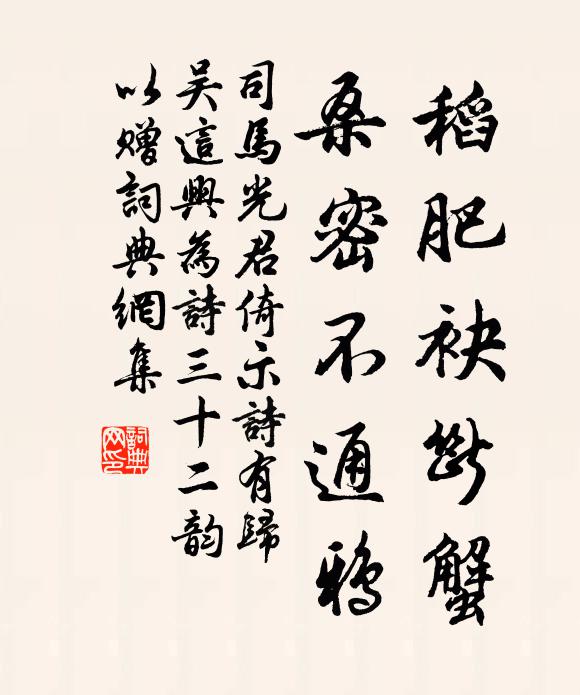 稻肥袂斷蟹
桑密不通鴉
司馬光君倚示詩有歸
吳這興為詩三十二韵
以贈詞典網集
詞典
网印